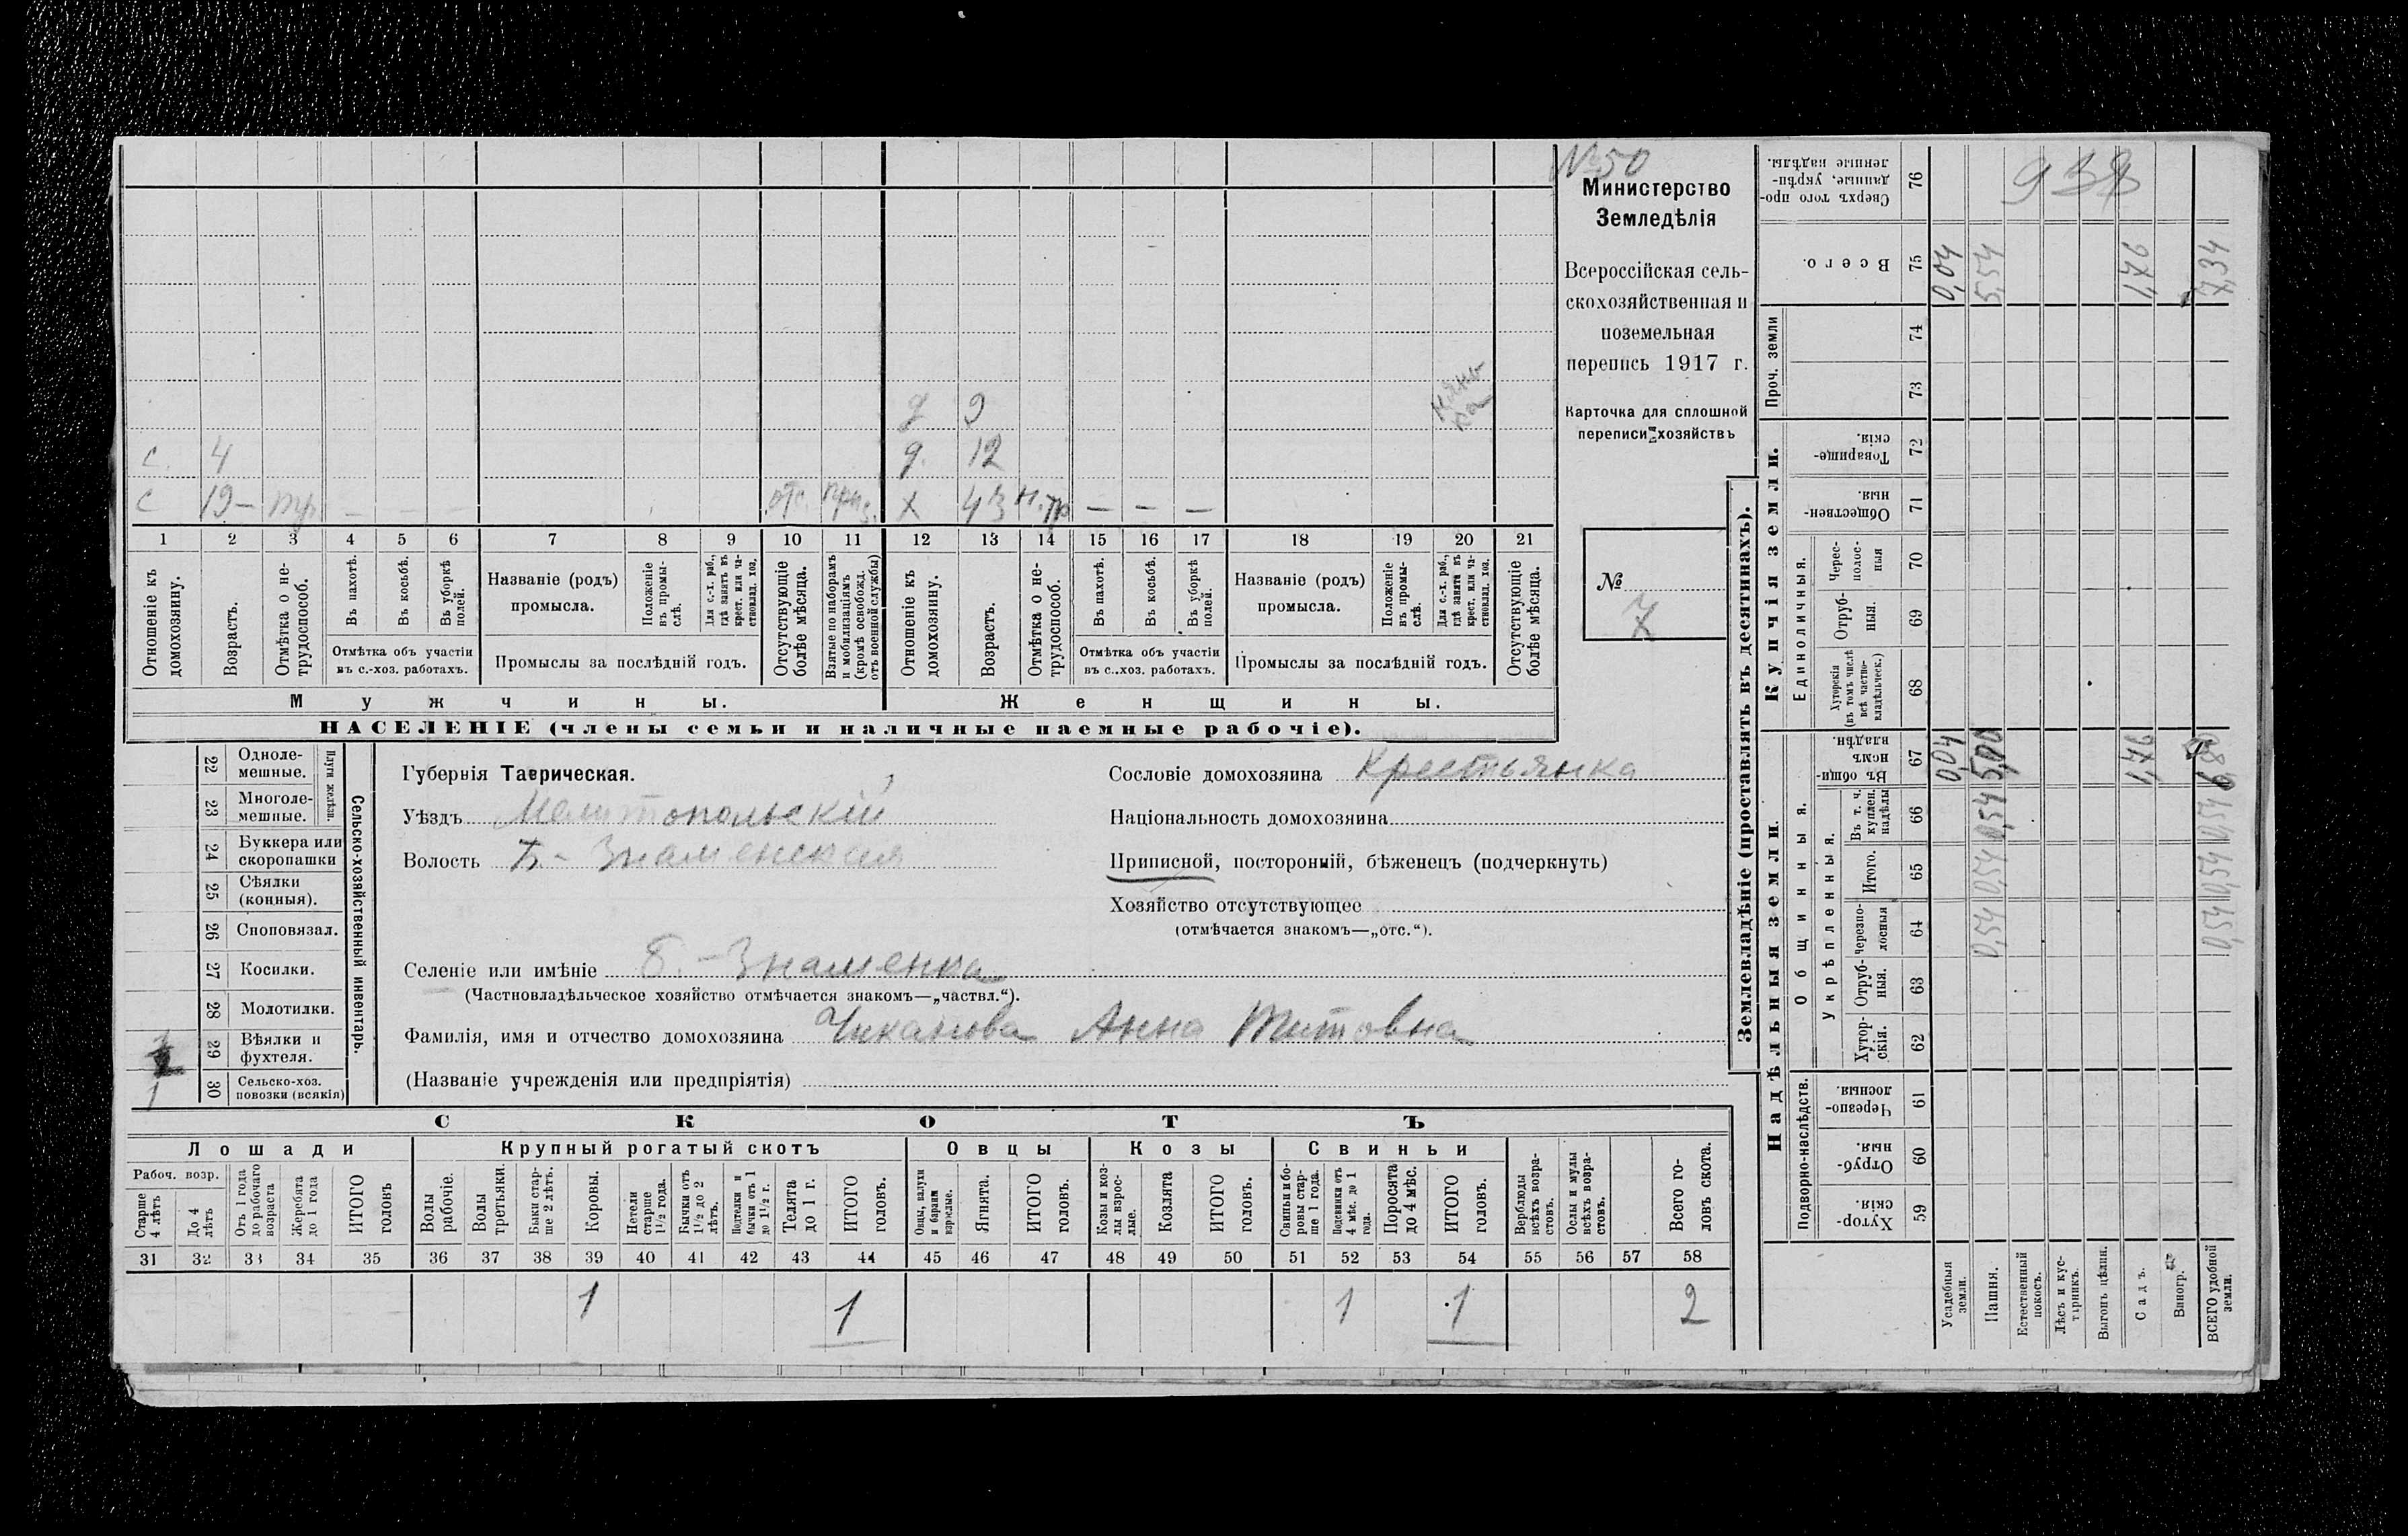 № 50
Министерство
Земледѣлія
Всероссійская сель-
скохозяйственная и
поземельная
перепись 1917 г.
Карточка для сплошной
переписи хозяйствъ
№
7
д 9
с. 4 д. 12
с 19 – тр. – – – отс. приз. х 43 н.тр – – –
нянь
ка
1 2 3 4 5 6 7 8 9 10 11 12 13 14 15 16 17 18 19 20 21
Отношеніе къ домохозяину.
Возрастъ.
Отмѣтка о не-трудоспособ.
Въ пахотѣ.
Въ косьбѣ.
Въ уборкѣ полей.
Отмѣтка объ участіи
въ с.-хоз. работахъ.
Названіе (родъ)
промысла.
Положеніе въ промы-слѣ.
Для с.-х. раб., гдѣ занятъ въ крест. или ча-стновлад. хоз.
Промыслы за послѣдній годъ.
Отсутствующіе болѣе мѣсяца.
Взятые по наборамъ и мобилизаціямъ (кромѣ освобожд. отъ военной службы)
Отношеніе къ домохозяину.
Возрастъ.
Отмѣтка о не-трудоспособ.
Въ пахотѣ.
Въ косьбѣ.
Въ уборкѣ полей.
Отмѣтка объ участіи
въ с..хоз. работахъ.
Названіе (родъ)
промысла.
Положеніе въ промы-слѣ.
Для с.-х. раб., гдѣ занята въ крест. или ча-стновлад. хоз.
Промыслы за послѣдній годъ.
Отсутствующіе болѣе мѣсяца.
Мужчины. Женщины.
НАСЕЛЕНІЕ (члены семьи и наличные наемные рабочіе).
Сельско-хозяйственный инвентарь.
Плуги желѣзн.
22 Одноле-мешные.
23 Многоле-мешные.
24 Буккера или скоропашки
25 Сѣялки (конныя).
26 Сноповязал.
27 Косилки.
28 Молотилки.
29 Вѣялки и фухтеля.
30 Сельско-хоз. повозки (всякія)
1
Губернія Таврическая.
Уѣздъ Мелитопольскій
Волость Б- Знаменская
Селеніе или имѣніе Б. - Знаменка
(Частновладѣльческое хозяйство отмѣчается знакомъ—„частвл.“).
Фамилія, имя и отчество домохозяина Чиканова Анна Титовна
(Названіе учрежденія или предпріятія)
Сословіе домохозяина Крестьянка
Національность домохозяина
Приписной, посторонній, бѣженецъ (подчеркнуть)
Хозяйство отсутствующее
(отмѣчается знакомъ—„отс.“).
СКОТЪ
Лошади Крупный рогатый скотъ Овцы Козы Свиньи
Рабоч. возр.
Старше 4 лѣтъ
До 4 лѣтъ
Отъ 1 года до рабочаго возраста
Жеребята до 1 года
ИТОГО головъ
Волы рабочіе.
Волы третьяки.
Быки стар-ше 2 лѣтъ.
Коровы.
Нетели старше 1½ года.
Бычки отъ 1½ до 2 лѣтъ.
Подтелки и бычки отъ 1 до 1½ г.
Телята до 1 г.
ИТОГО головъ.
Овцы, валухи и бараны взрослые.
Ягнята.
ИТОГО головъ.
Козы и коз-лы взрос-лые.
Козлята
ИТОГО головъ.
Свиньи и бо-ровы стар-ше 1 года.
Подсвинки отъ 4 мѣс. до 1 года.
Поросята до 4 мѣс.
ИТОГО головъ.
Верблюды всѣхъ возра-стовъ.
Ослы и мулы всѣхъ возра-стовъ.
Всего го-ловъ скота.
31 32 33 34 35 36 37 38 39 40 41 42 43 44 45 46 47 48 49 50 51 52 53 54 55 56 57 58
1 1 1 1 2
Землевладѣніе (проставлять въ десятинахъ).
Надѣльныя земли.
Купчія земли.
Проч. земли
Подворно-наслѣдств.
Общинныя.
Укрѣпленныя.
Единоличныя.
Хутор-скія. 59
Отруб-ныя. 60
Черезпо-лосныя 61
Хутор-скія. 62
Отруб-ныя. 63
Черезпо-лосныя 64
Итого. 65
Въ т. ч. куплен. надѣлы 66
Въ общи-номъ владѣн. 67
Хуторскія (въ томъ числѣ всѣ частно-владѣльческ.) 68
Отруб-ныя. 69
Черес-полос-ныя 70
Обществен-ныя. 71
Товарище-скія. 72
73
74
Всего. 75
Сверхъ того про-данные, укрѣп-ленные надѣлы. 76
938
Усадебныя земли. 0,04 0,04
Пашня. 0,54 0,54 0,54 5,00 5,54
Естественный покосъ.
Лѣсъ и кус-тарникъ.
Выгонъ цѣлин.
Садъ. 1,76 1,76
Виногр.
ВСЕГО удобной земли. 0,54 0,54 0,54 6,80 7,34